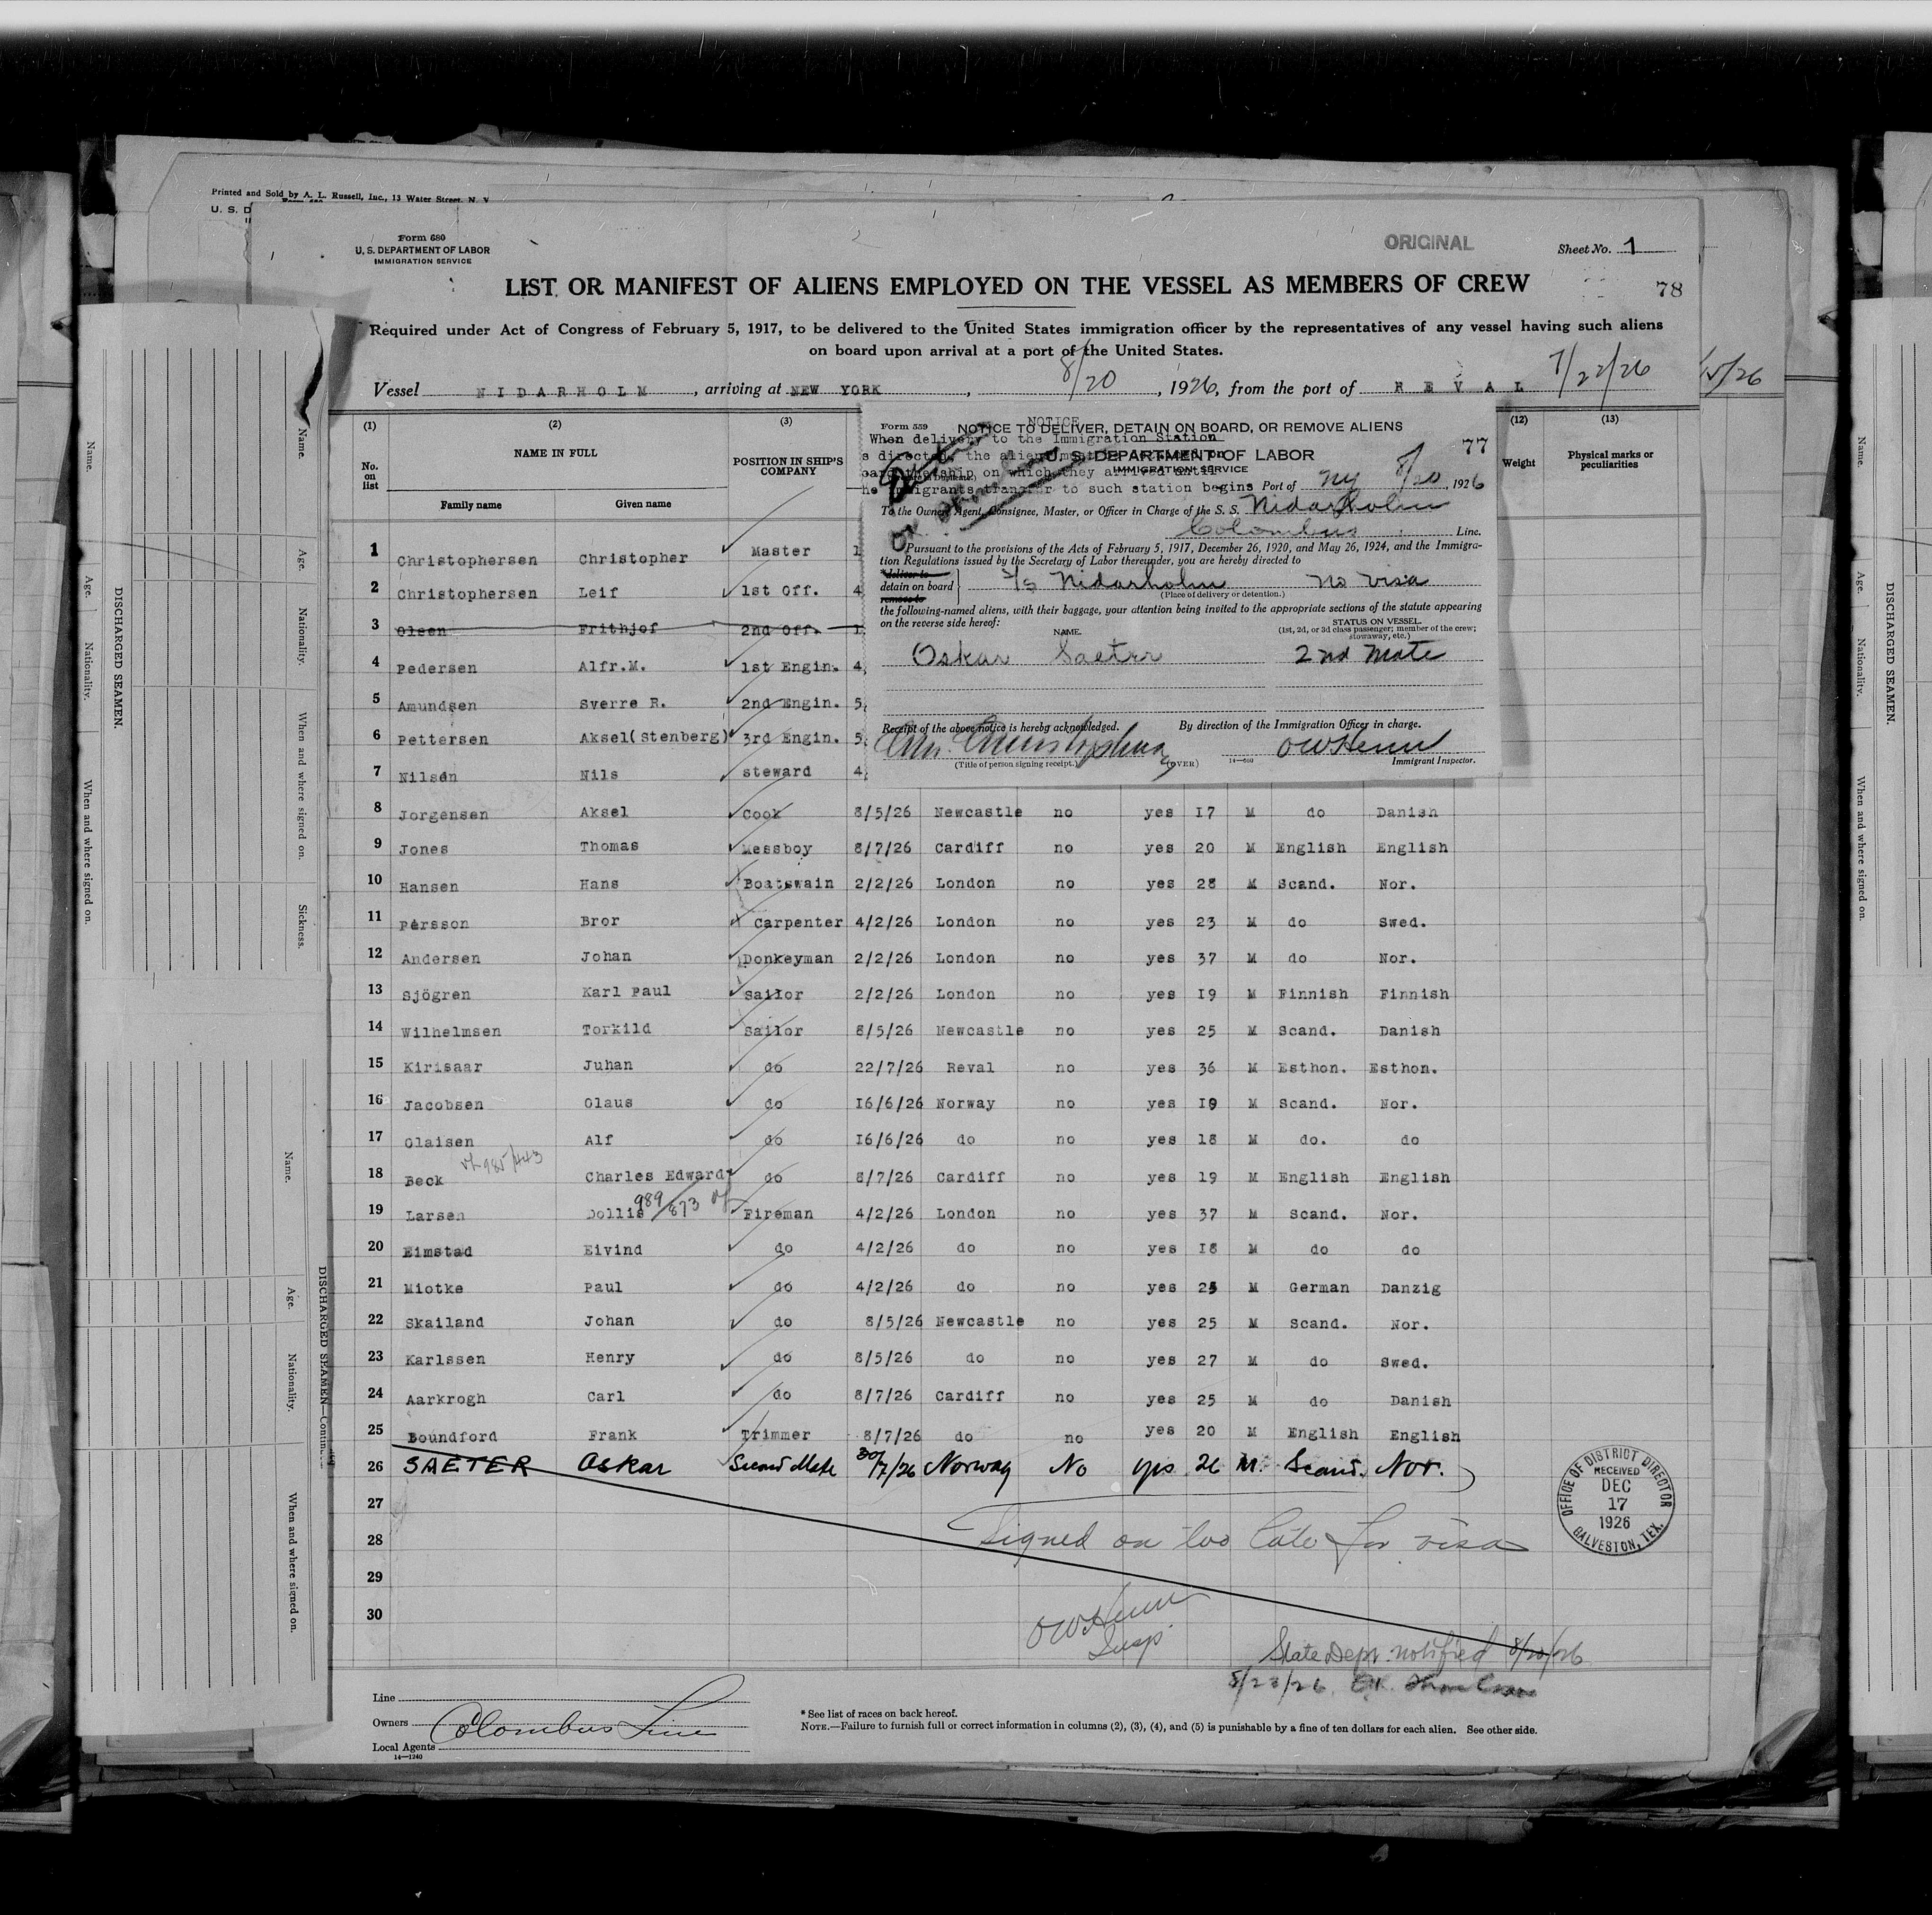 Printed and Sold by A. L. Russell, Inc., 13 Water Street, N. Y
U. S. D
Form 680
U. S. DEPARTMENT OF LABOR
IMMIGRATION SERVICE
ORIGINAL
Sheet No. 1
LIST OR MANIFEST OF ALIENS EMPLOYED ON THE VESSEL AS MEMBERS OF CREW
78
Required under Act of Congress of February 5, 1917, to be delivered to the United States immigration officer by the representatives of any vessel having such aliens
on board upon arrival at a port of the United States.
Vessel NIDARHOLM, arriving at NEW YORK, 8/20, 1926, from the port of REVAL 7/22/26
15/26
(1) (2) (3) (12) (13)
No. on list NAME IN FULL POSITION IN SHIP'S COMPANY Weight Physical marks or peculiarities
Family name Given name
Form 559 NOTICE
NOTICE TO DELIVER, DETAIN ON BOARD, OR REMOVE ALIENS
When delivery to the Immigration Station
77
U. S. DEPARTMENT OF LABOR
IMMIGRATION SERVICE
immigrants transfer to such station begins Port of NY 8/20, 1926
To the Owner, Agent, Consignee, Master, or Officer in Charge of the S. S. Nidarholm
Colombus Line.
Pursuant to the provisions of the Acts of February 5, 1917, December 26, 1920, and May 26, 1924, and the Immigra-
tion Regulations issued by the Secretary of Labor thereunder, you are hereby directed to
*deliver to
detain on board S/S Nidarholm no visa
remove to
(Place of delivery or detention.)
the following-named aliens, with their baggage, your attention being invited to the appropriate sections of the statute appearing
on the reverse side hereof:
NAME. STATUS ON VESSEL.
(1st, 2d, or 3d class passenger; member of the crew; stowaway, etc.)
Oskar Saeter 2nd Mate
Receipt of the above notice is hereby acknowledged. By direction of the Immigration Officer in charge.
Chr. Christophersen OWHenn
(Title of person signing receipt.) (OVER) 14—600 Immigrant Inspector.
1 Christophersen Christopher Master 1
2 Christophersen Leif 1st Off. 4
3 Olsen Frithjof 2nd Off. 1
4 Pedersen Alfr.M. 1st Engin. 4
5 Amundsen Sverre R. 2nd Engin. 5
6 Pettersen Aksel(Stenberg) 3rd Engin. 5
7 Nilsen Nils steward 4
8 Jorgensen Aksel Cook 8/5/26 Newcastle no yes 17 M do Danish
9 Jones Thomas Messboy 8/7/26 Cardiff no yes 20 M English English
10 Hansen Hans Boatswain 2/2/26 London no yes 28 M Scand. Nor.
11 Persson Bror Carpenter 4/2/26 London no yes 23 M do Swed.
12 Andersen Johan Donkeyman 2/2/26 London no yes 37 M do Nor.
13 Sjögren Karl Paul Sailor 2/2/26 London no yes 19 M Finnish Finnish
14 Wilhelmsen Torkild Sailor 8/5/26 Newcastle no yes 25 M Scand. Danish
15 Kirisaar Juhan do 22/7/26 Reval no yes 36 M Esthon. Esthon.
16 Jacobsen Olaus do 16/6/26 Norway no yes 19 M Scand. Nor.
17 Olaisen Alf do 16/6/26 do no yes 18 M do. do
985/443
18 Beck Charles Edward do 8/7/26 Cardiff no yes 19 M English English
989/873
19 Larsen Dollis Fireman 4/2/26 London no yes 37 M Scand. Nor.
20 Eimstad Eivind do 4/2/26 do no yes 18 M do do
21 Miotke Paul do 4/2/26 do no yes 25 M German Danzig
22 Skailand Johan do 8/5/26 Newcastle no yes 25 M Scand. Nor.
23 Karlssen Henry do 8/5/26 do no yes 27 M do Swed.
24 Aarkrogh Carl do 8/7/26 Cardiff no yes 25 M do Danish
25 Boundford Frank Trimmer 8/7/26 do no yes 20 M English English
26 SAETER Oskar Second Mate 30/7/26 Norway No yes 26 M. Scand. Nor.
27
28 Signed on too late for visa
29
30
OWHenn
Insp.
State Dept. notified 8/20/26
8/23/26
OFFICE OF DISTRICT DIRECTOR
RECEIVED
DEC
17
1926
GALVESTON, TEX.
Line
Owners Colombus Line
Local Agents
14—1240
* See list of races on back hereof.
NOTE.—Failure to furnish full or correct information in columns (2), (3), (4), and (5) is punishable by a fine of ten dollars for each alien. See other side.
DISCHARGED SEAMEN.
Name. Age. Nationality. When and where signed on. Sickness.
DISCHARGED SEAMEN—Continued
Name. Age. Nationality. When and where signed on.
DISCHARGED SEAMEN.
Name. Age. Nationality. When and where signed on.